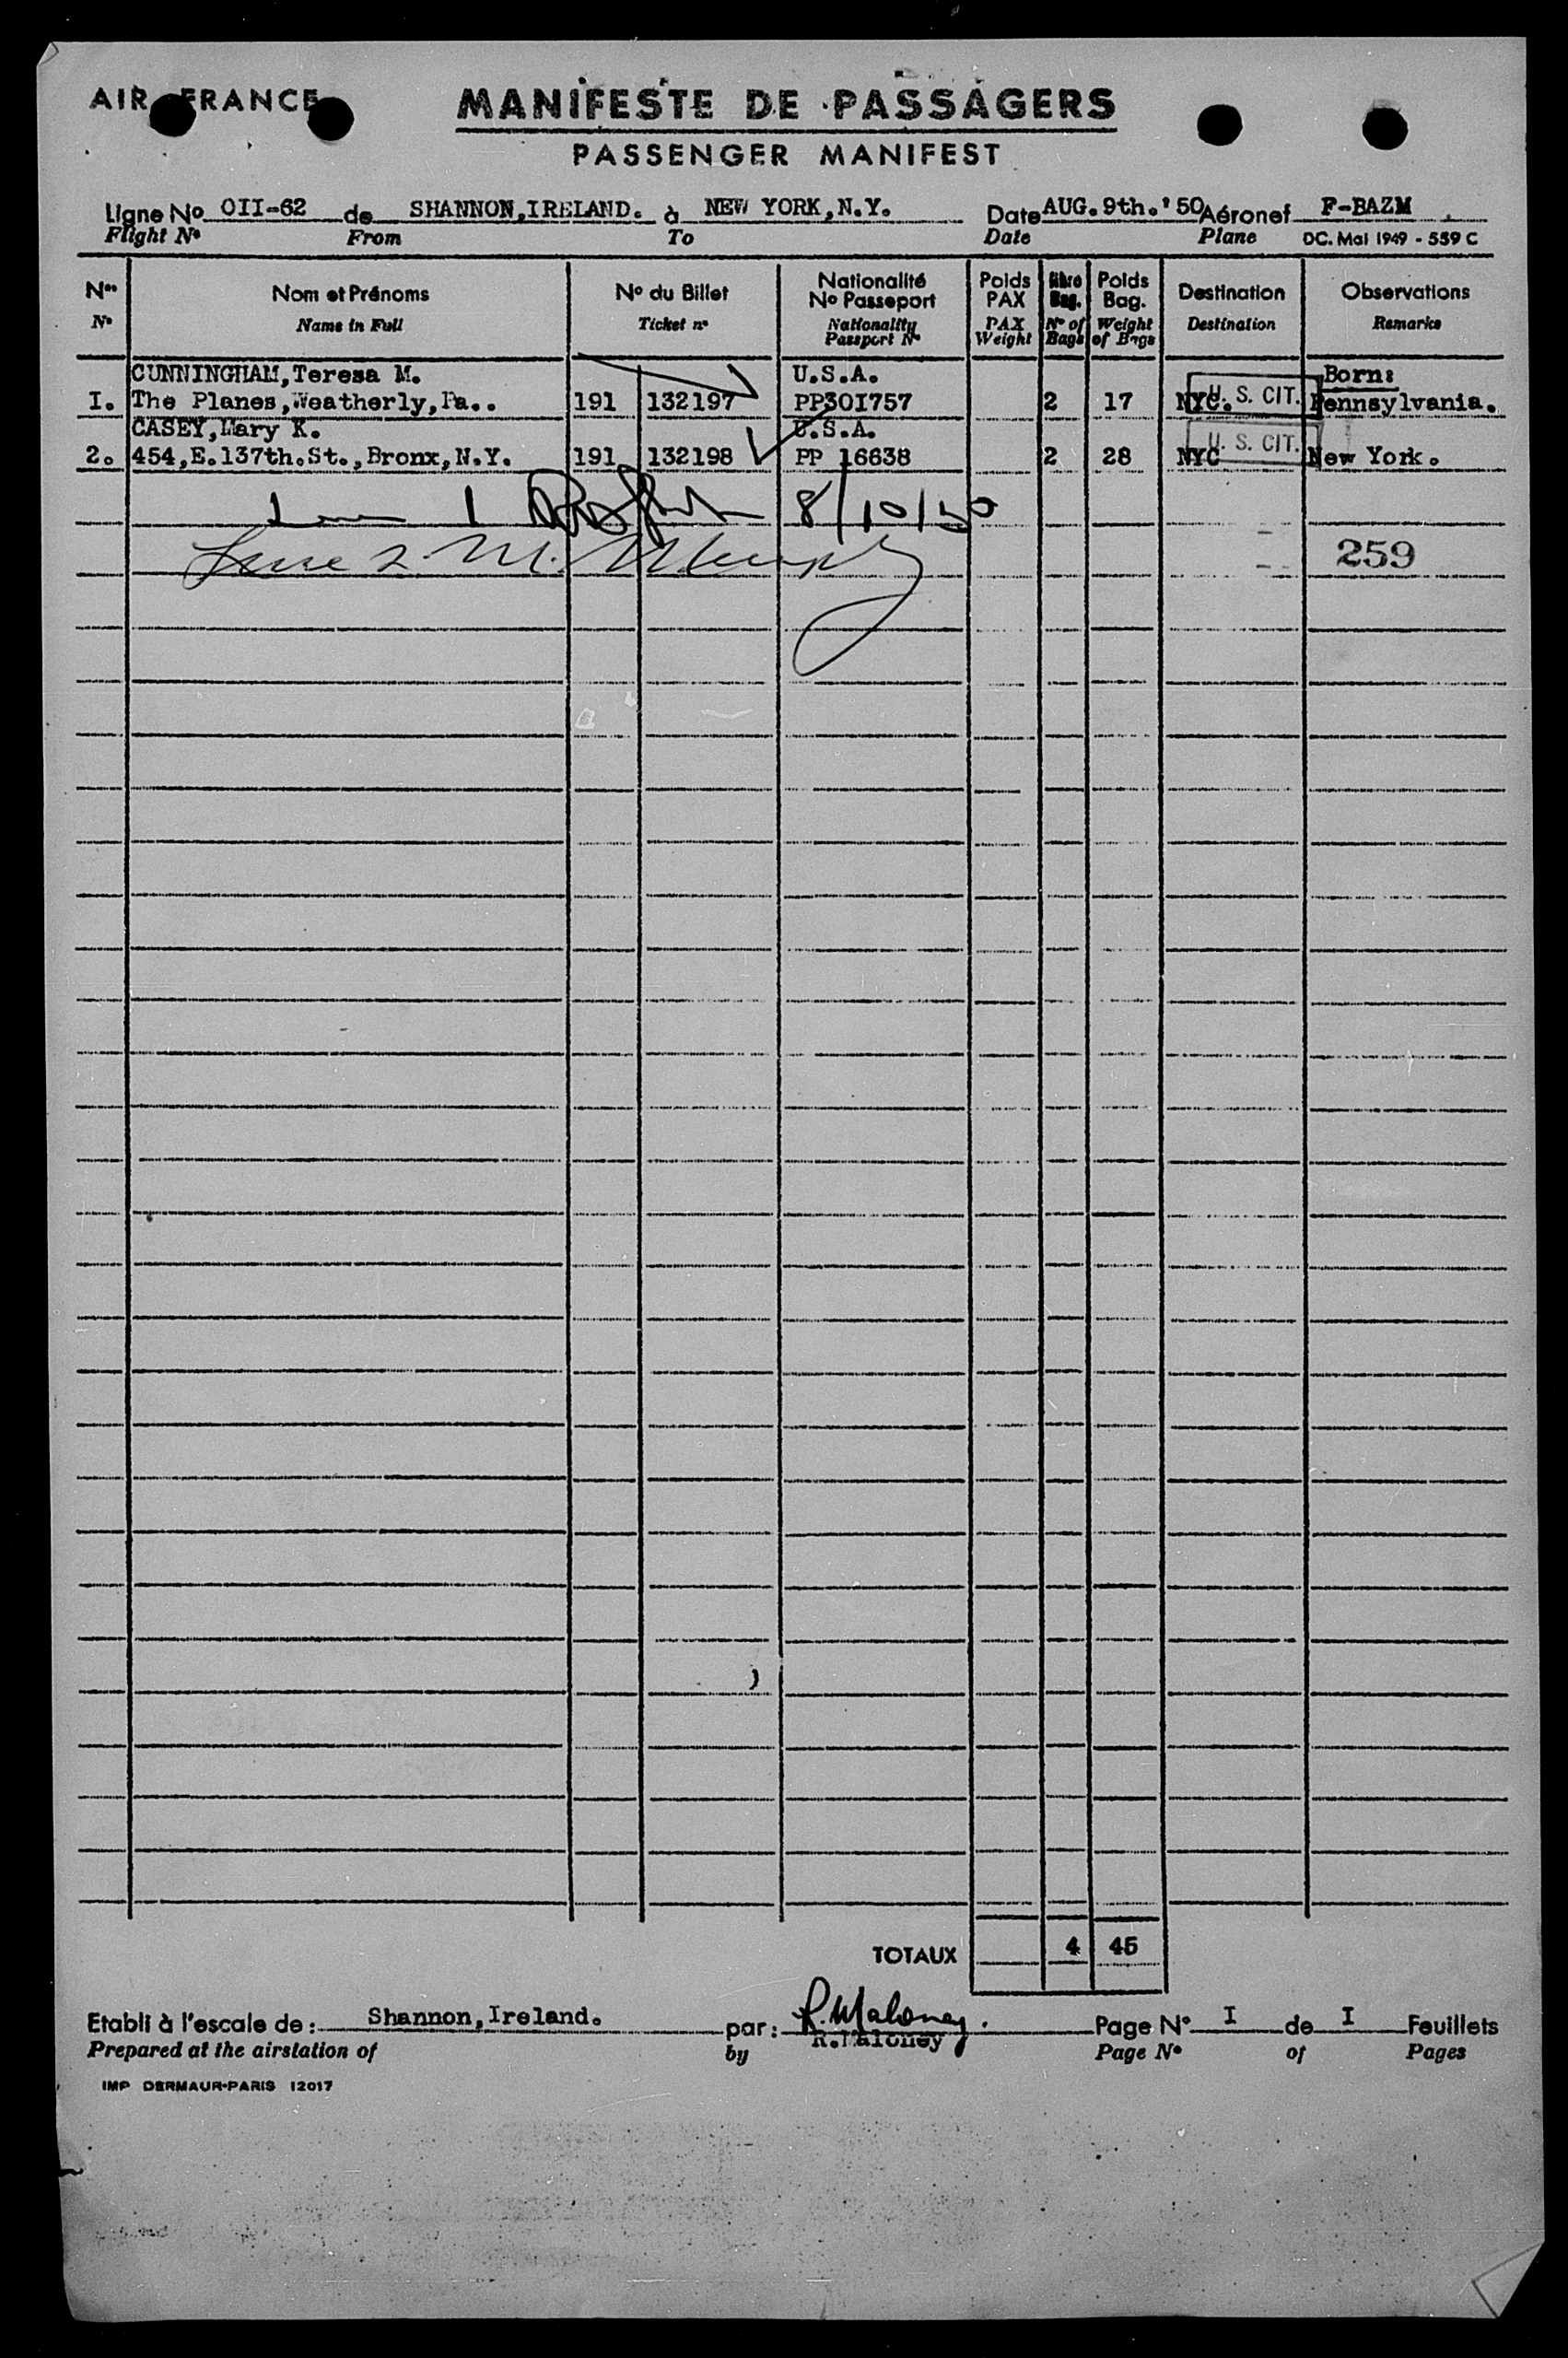 AIR FRANCE
MANIFESTE DE PASSAGERS
PASSENGER MANIFEST
Ligne No OII-62 de SHANNON,IRELAND. à NEW YORK,N.Y. Date AUG.9th.'50 Aéronef F-BAZM
Flight No From To Date Plane DC. Mai 1949 - 559 C
Nos Nom et Prénoms No du Billet Nationalité No Passeport Poids PAX Nbre Bag. Poids Bag. Destination Observations
No Name in Full Ticket no Nationality Passport No PAX Weight No of Bags Weight of Bags Destination Remarks
CUNNINGHAM,Teresa M. U.S.A. Born:
I. The Planes,Weatherly,Pa.. 191 132197 PP30I757 2 17 NYC. U. S. CIT. Pennsylvania.
CASEY,Mary K. U.S.A.
2. 454,E.137th.St.,Bronx,N.Y. 191 132198 PP 16638 2 28 NYC U. S. CIT. New York.
8/10/50
M. Murphy
259
TOTAUX 4 45
R. Maloney.
Etabli à l'escale de: Shannon,Ireland. par: R.Maloney Page No I de I Feuillets
Prepared at the airstation of by Page No of Pages
IMP DERMAUR-PARIS 12017